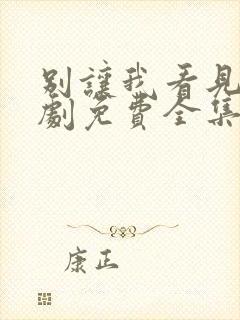 別讓我看見
劇免費全集
康正